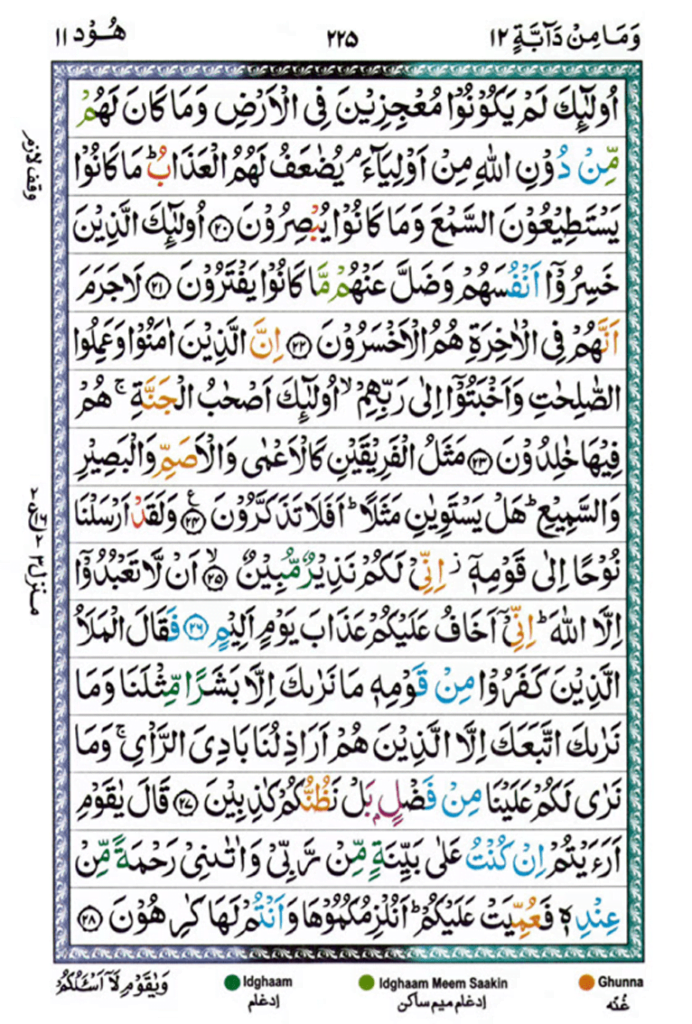 وَمَا مِنْ دَآبَّةٍ ١٢ ٢٢٥ هُوْد ١١
اُولٰٓئِكَ لَمْ يَكُوْنُوْا مُعْجِزِيْنَ فِى الْاَرْضِ وَمَا كَانَ لَهُمْ
مِّنْ دُوْنِ اللّٰهِ مِنْ اَوْلِيَآءَ ۘ يُضٰعَفُ لَهُمُ الْعَذَابُ ؕ مَا كَانُوْا
يَسْتَطِيْعُوْنَ السَّمْعَ وَمَا كَانُوْا يُبْصِرُوْنَ ﴿٢٠﴾ اُولٰٓئِكَ الَّذِيْنَ
خَسِرُوْۤا اَنْفُسَهُمْ وَضَلَّ عَنْهُمْ مَّا كَانُوْا يَفْتَرُوْنَ ﴿٢١﴾ لَا جَرَمَ
اَنَّهُمْ فِى الْاٰخِرَةِ هُمُ الْاَخْسَرُوْنَ ﴿٢٢﴾ اِنَّ الَّذِيْنَ اٰمَنُوْا وَعَمِلُوا
الصّٰلِحٰتِ وَاَخْبَتُوْۤا اِلٰى رَبِّهِمْ ۙ اُولٰٓئِكَ اَصْحٰبُ الْجَنَّةِ ۚ هُمْ
فِيْهَا خٰلِدُوْنَ ﴿٢٣﴾ مَثَلُ الْفَرِيْقَيْنِ كَالْاَعْمٰى وَالْاَصَمِّ وَالْبَصِيْرِ
وَالسَّمِيْعِ ؕ هَلْ يَسْتَوِيٰنِ مَثَلًا ؕ اَفَلَا تَذَكَّرُوْنَ ﴿٢٤﴾ ع وَلَقَدْ اَرْسَلْنَا
نُوْحًا اِلٰى قَوْمِهٖۤ ز اِنِّىْ لَكُمْ نَذِيْرٌ مُّبِيْنٌ ﴿٢٥﴾ ۙ اَنْ لَّا تَعْبُدُوْۤا
اِلَّا اللّٰهَ ؕ اِنِّىْۤ اَخَافُ عَلَيْكُمْ عَذَابَ يَوْمٍ اَلِيْمٍ ﴿٢٦﴾ فَقَالَ الْمَلَاُ
الَّذِيْنَ كَفَرُوْا مِنْ قَوْمِهٖ مَا نَرٰىكَ اِلَّا بَشَرًا مِّثْلَنَا وَمَا
نَرٰىكَ اتَّبَعَكَ اِلَّا الَّذِيْنَ هُمْ اَرَاذِلُنَا بَادِىَ الرَّاْىِ ۚ وَمَا
نَرٰى لَكُمْ عَلَيْنَا مِنْ فَضْلٍۭ بَلْ نَظُنُّكُمْ كٰذِبِيْنَ ﴿٢٧﴾ قَالَ يٰقَوْمِ
اَرَءَيْتُمْ اِنْ كُنْتُ عَلٰى بَيِّنَةٍ مِّنْ رَّبِّىْ وَاٰتٰىنِىْ رَحْمَةً مِّنْ
عِنْدِهٖ فَعُمِّيَتْ عَلَيْكُمْ ؕ اَنُلْزِمُكُمُوْهَا وَاَنْتُمْ لَهَا كٰرِهُوْنَ ﴿٢٨﴾
وقف لازم
منزل ٣
وَيٰقَوْمِ لَاۤ اَسْـَٔلُكُمْ
Idghaam Idghaam Meem Saakin Ghunna
ادغام ادغام میم ساکن غُنّه